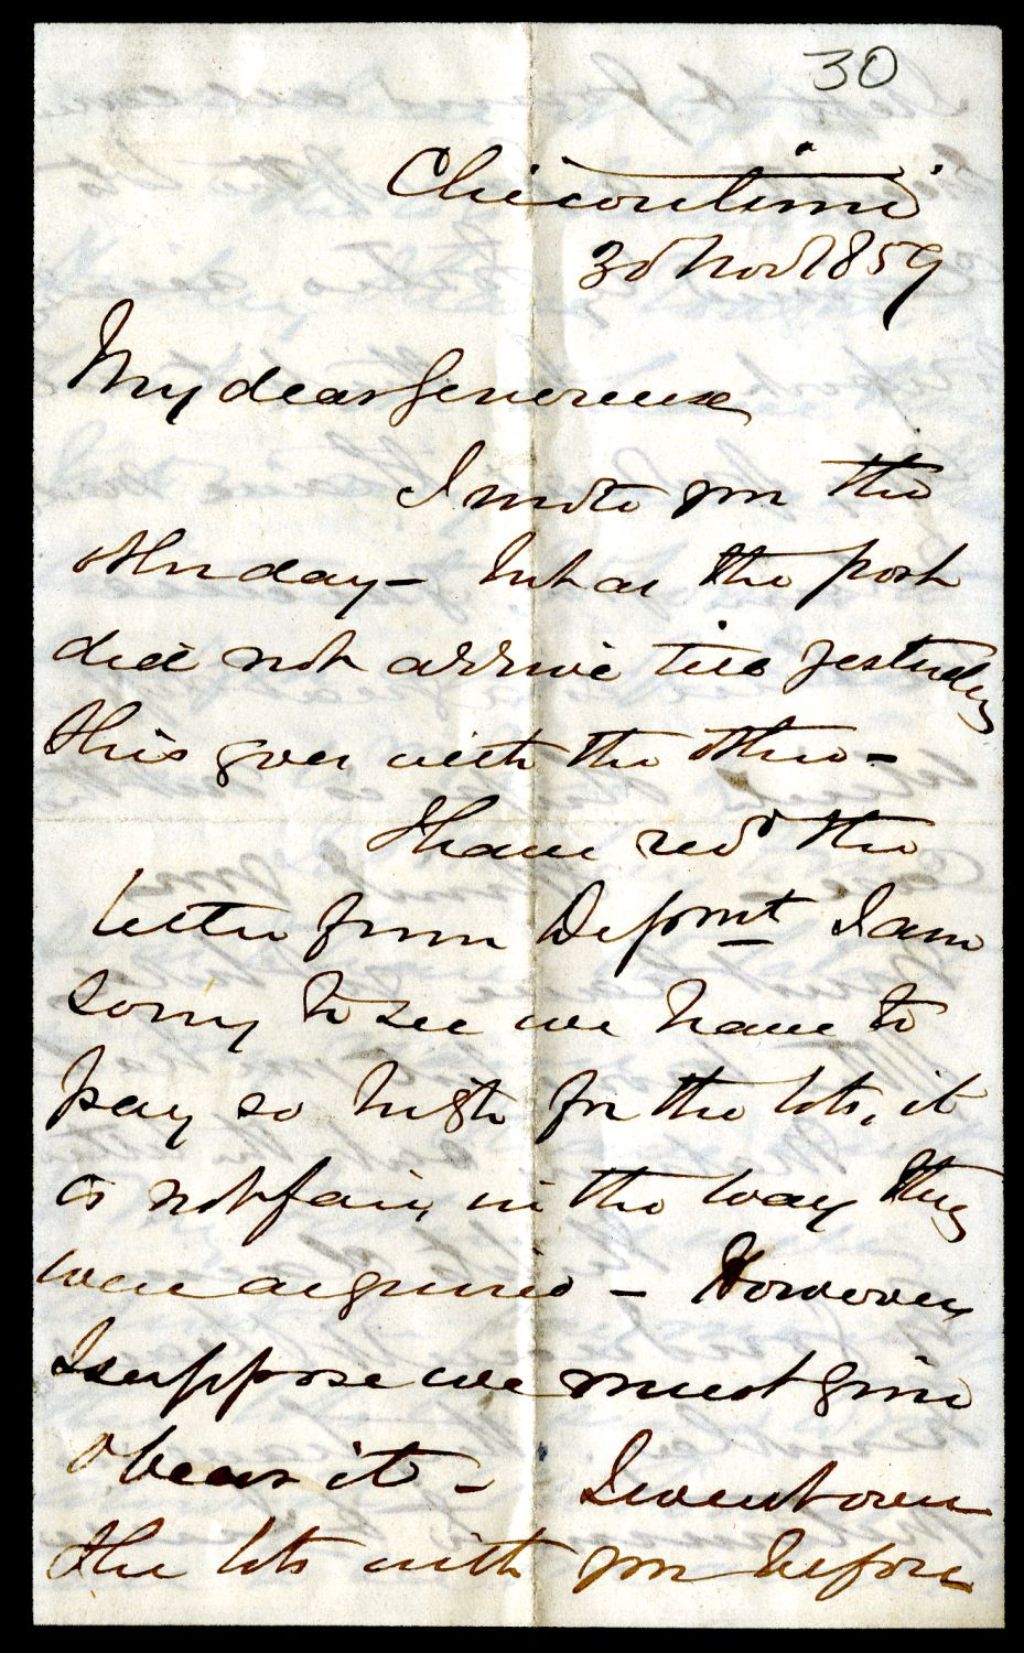 30
Chicoutimi
3d Nov 1859
My dear Genereux
I wrote you the
other day - but as the post
did not arrive till yesterday
this goes with the other -
I have recd the
letter from Depmt I am
sorry to see we have to
pay so high for the lots, it
is not fair, in the way they
were acquired - However
I suppose we must grin
& bear it - I went over
the lots with you before